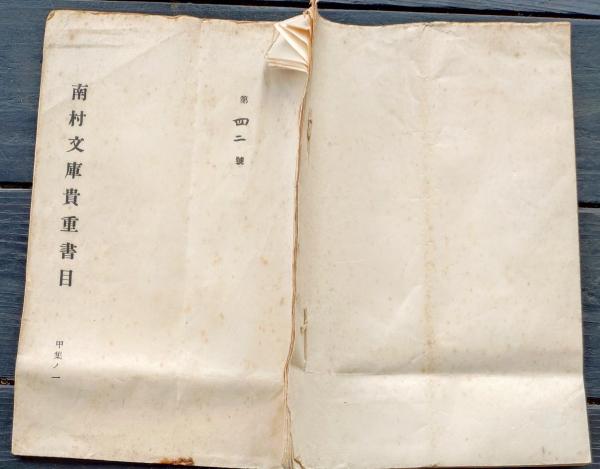 第四二號
南村文庫貴重書目
甲集ノ一